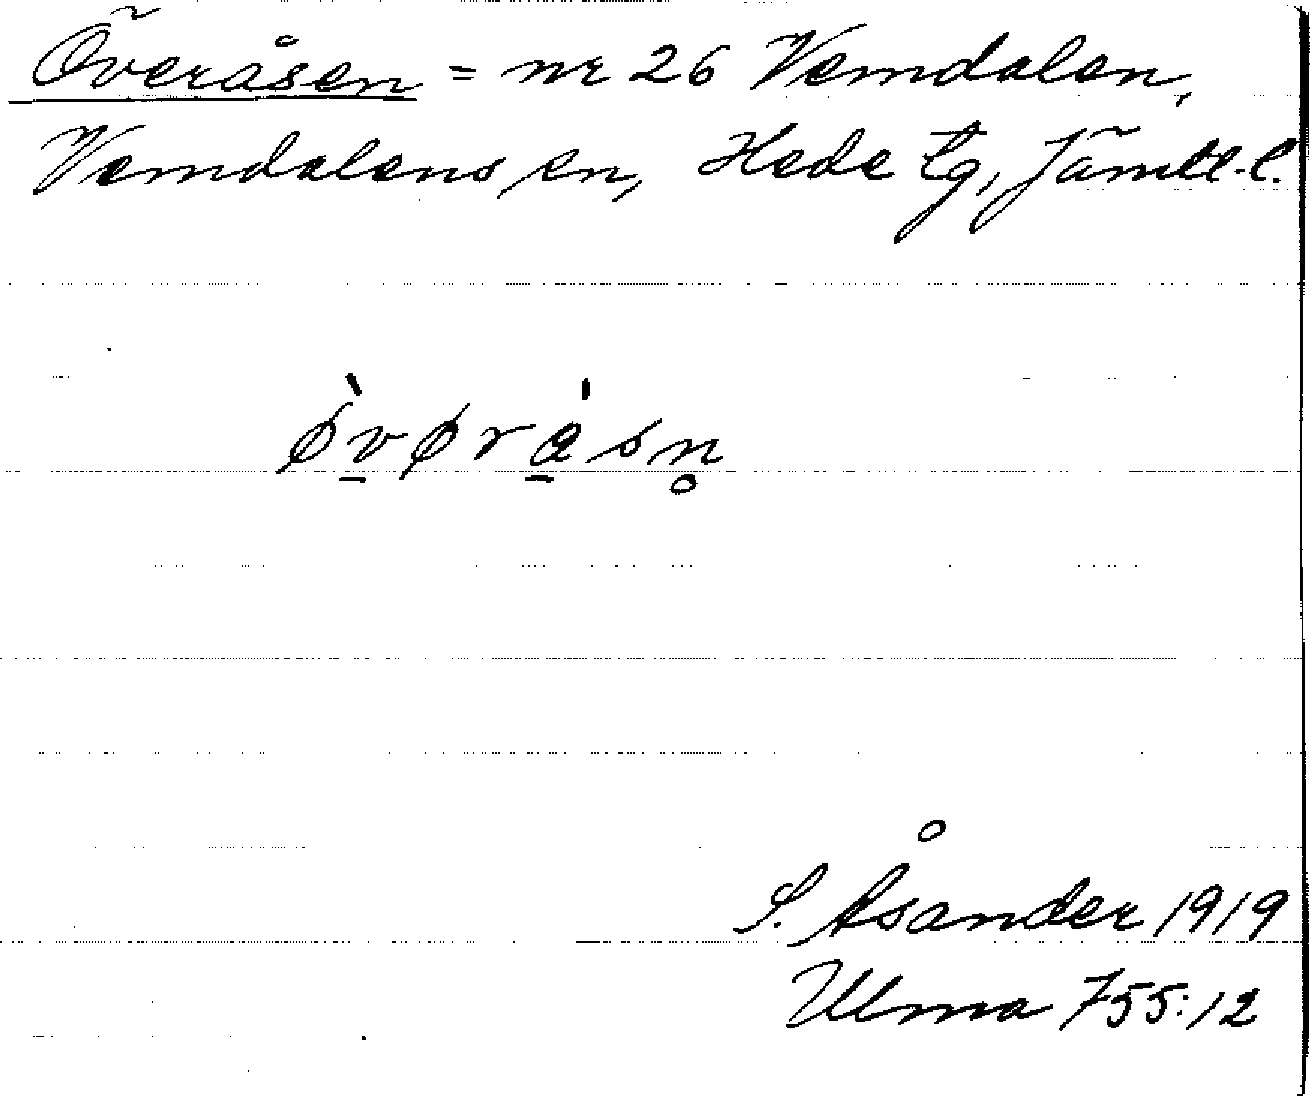 Överåsen = nr 26 Vemdalen,
Vemdalens sn, Hede tg, Jämtl. l.
ø̀v̠øra̠̍sn̥
S. Åsander 1919
Ulma 755:12